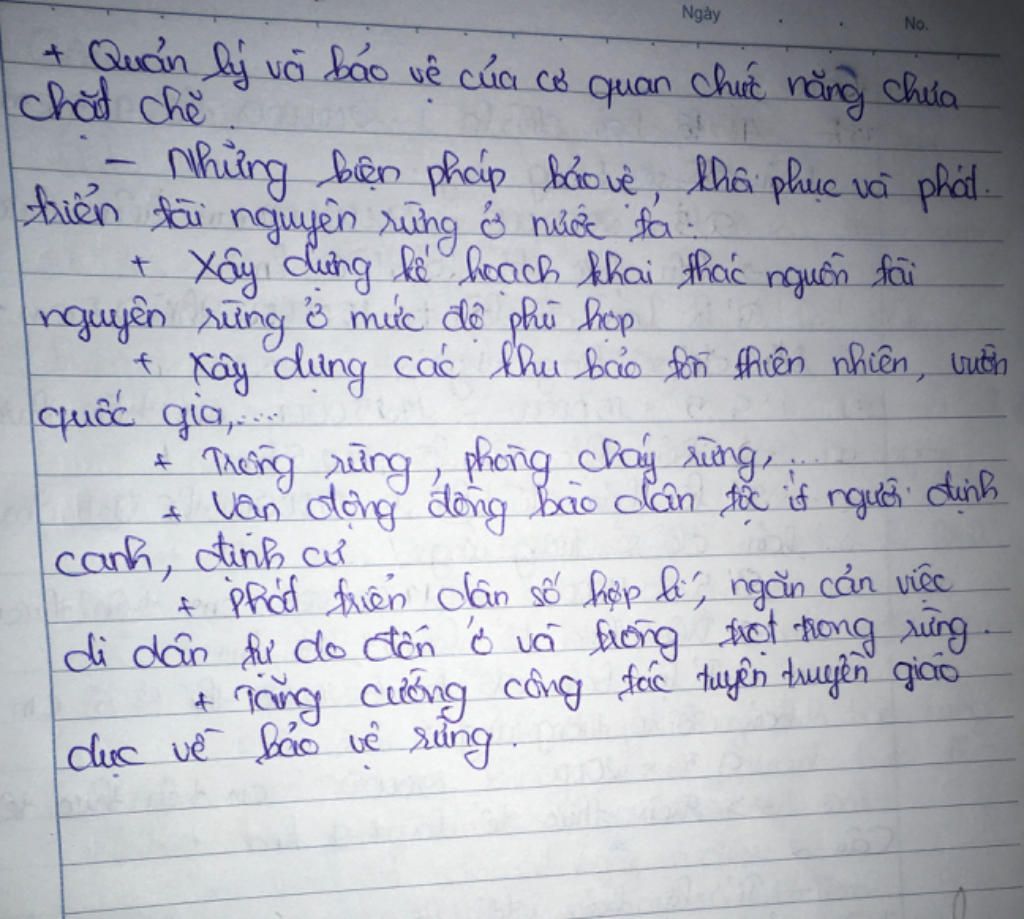 Ngày No.
+ Quản lý và bảo vệ của cơ quan chức năng chưa
chặt chẽ.
- Những biện pháp bảo vệ, khôi phục và phát
triển tài nguyên rừng ở nước ta:
+ Xây dựng kế hoạch khai thác nguồn tài
nguyên rừng ở mức độ phù hợp
+ Xây dựng các khu bảo tồn thiên nhiên, vườn
quốc gia,....
+ Trồng rừng, phòng cháy rừng,...
+ Vận động đồng bào dân tộc ít người định
canh, định cư
+ Phát triển dân số hợp lí, ngăn cản việc
di dân tự do đến ở và trồng trọt trong rừng.
+ Tăng cường công tác tuyên truyền giáo
dục về bảo vệ rừng.